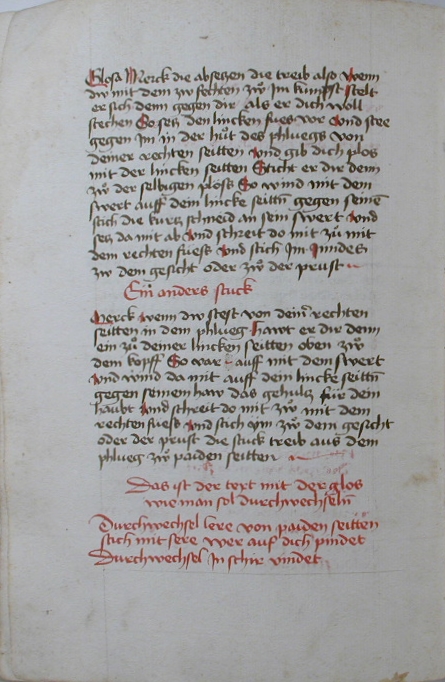 Glosa Merck die absetzen die treib also wenn
dw mit dem zw fechten zw im kumpst stelt
er sich denn gegen dir als er dich woll
stechen So setz den lincken fues vor Und stee
gegen im in der hůt des phluegs von
deiner rechten seitten Und gib dich plos
mit der lincken seitten Sticht er dir denn
zw der selbigen ploss So wind mit dem
swert auff dein lincke seittn gegen seinē
stich die kurtz schneid an sein swert Und
setz da mit ab Und schreit do mit zů mit
dem rechten fuess Und stich im Inndes
zw dem gesicht oder zw der prust
Ein anders stuck
Merck wenn dw stest von deinr rechten
seitten in dem phlueg hawt er dir denn
ein zů deiner lincken seitten oben zw
dem kopff So var auff mit dem swert
Und wind da mit auff dein lincke seittn
gegen seinem haw das gehultz für dein
haubt Und schreit do mit zw mit dem
rechten fuess Und stich im zw dem gesicht
oder der prust die stuck treib aus dem
phlueg zw paiden seitten
Das ist der text mit der glos
wie man sol durchwechseln
Durchwechsel lere von paiden seitten
stich mit sere wer auf dich pindet
Durchwechsel in schir vindet